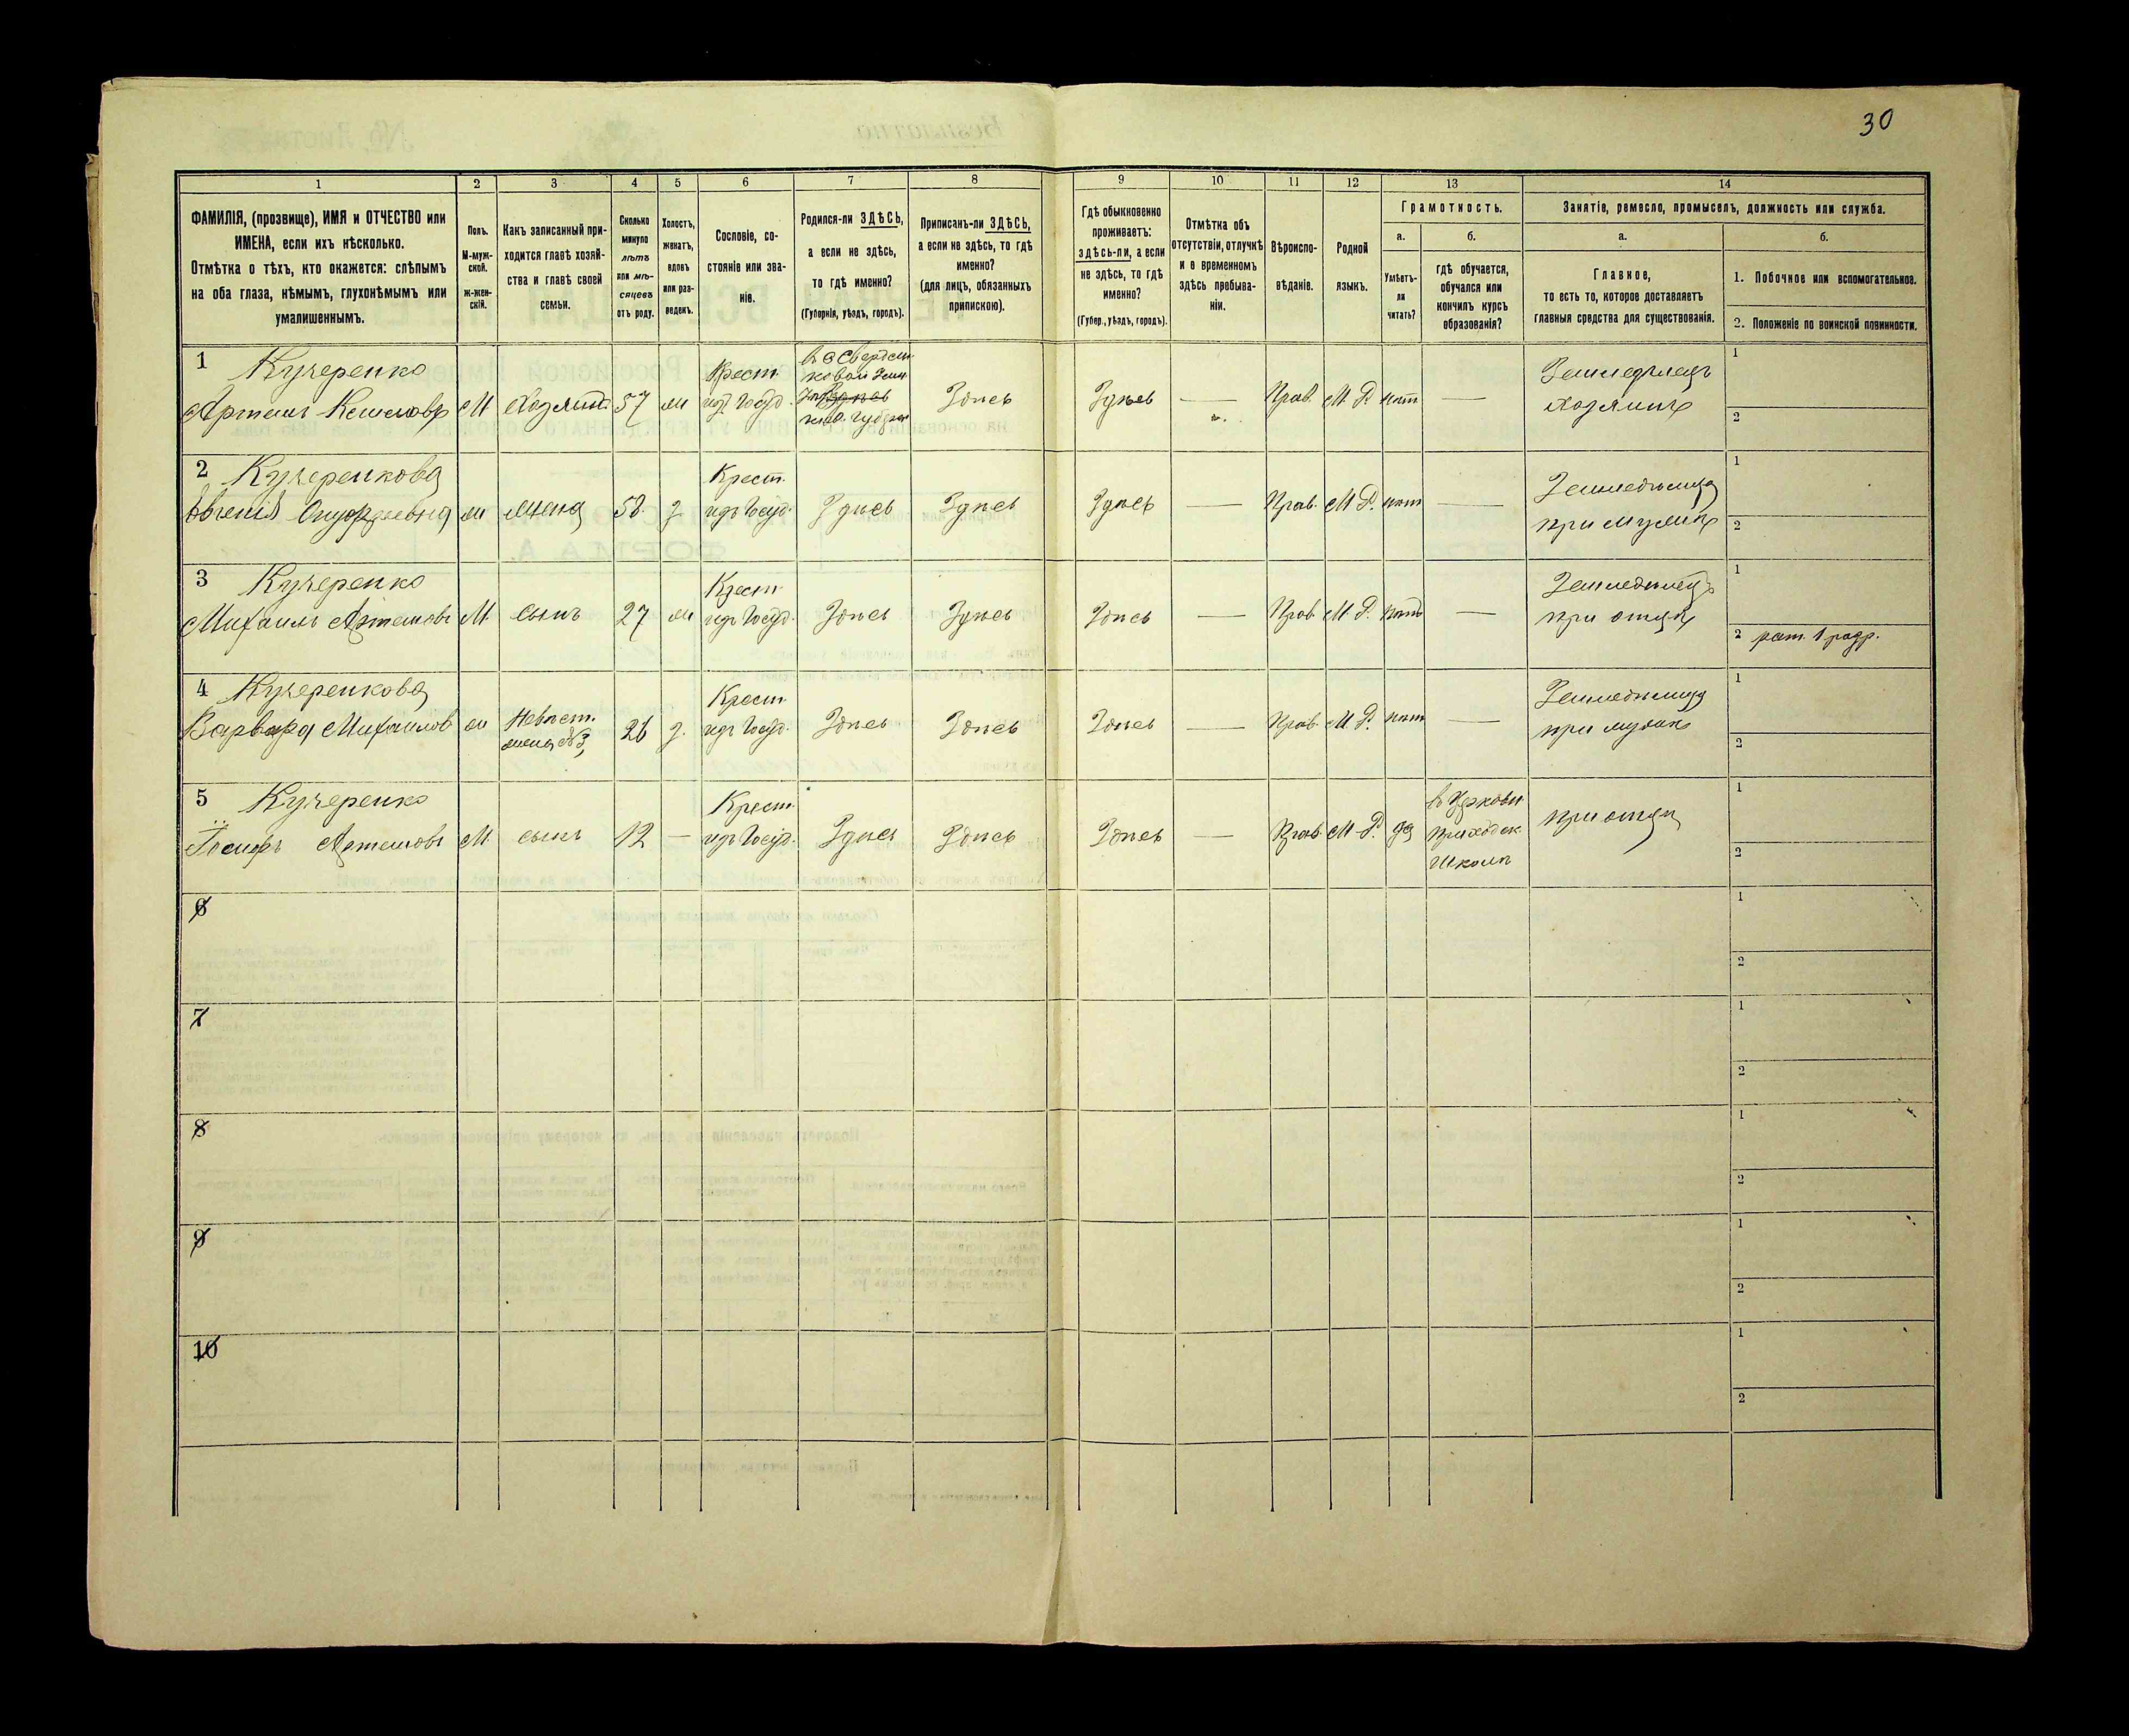 30
1 2 3 4 5 6 7 8 9 10 11 12 13 14
ФАМИЛІЯ, (прозвище), ИМЯ и ОТЧЕСТВО или
ИМЕНА, если ихъ нѣсколько.
Отмѣтка о тѣхъ, кто окажется: слѣпымъ
на оба глаза, нѣмымъ, глухонѣмымъ или
умалишеннымъ.
Полъ.
М-муж-
ской.
ж-жен-
скій.
Какъ записанный при-
ходится главѣ хозяй-
ства и главѣ своей
семьи.
Сколько
минуло
лѣтъ
или мѣ-
сяцевъ
отъ роду.
Холостъ,
женатъ,
вдовъ
или раз-
веденъ.
Сословіе, со-
стояніе или зва-
ніе.
Родился-ли ЗДѢСЬ,
а если не здѣсь,
то гдѣ именно?
(Губернія, уѣздъ, городъ).
Приписанъ-ли ЗДѢСЬ,
а если не здѣсь, то гдѣ
именно?
(для лицъ, обязанныхъ
припискою).
Гдѣ обыкновенно
проживаетъ:
здѣсь-ли, а если
не здѣсь, то гдѣ
именно?
(Губер., уѣздъ, городъ).
Отмѣтка объ
отсутствіи, отлучкѣ
и о временномъ
здѣсь пребыва-
ніи.
Вѣроиспо-
вѣданіе.
Родной
языкъ.
Грамотность.
а.
Умѣетъ-
ли
читать?
б.
гдѣ обучается,
обучался или
кончилъ курсъ
образованія?
Занятіе, ремесло, промыселъ, должность или служба.
а.
Главное,
то есть то, которое доставляетъ
главныя средства для существованія.
б.
1. Побочное или вспомогательное.
2. Положеніе по воинской повинности.
1 Кучеренко
Артемъ
М
Хозяинъ
57
ж
Крест.
изъ Госуд.
Здѣсь
Здѣсь
—
Прав.
М. Р.
нѣтъ
—
Земледѣлецъ
хозяинъ
1
2
2 Кучеренкова
Евгенія
ж
жена
58
з
Крест.
изъ Госуд.
Здѣсь
Здѣсь
Здѣсь
—
Прав.
М. Р.
нѣтъ
—
Земледѣлица
при мужѣ
1
2
3 Кучеренко
Михаилъ Артемовъ
М
сынъ
27
ж
Крест.
изъ Госуд.
Здѣсь
Здѣсь
Здѣсь
—
Прав.
М. Р.
нѣтъ
—
Земледѣлецъ
при отцѣ
1
2 рат. 1 разр.
4 Кучеренкова
Варвара Михаилов
ж
Невѣст.
жена №3
26
з.
Крест.
изъ Госуд.
Здѣсь
Здѣсь
Здѣсь
—
Прав.
М. Р.
нѣтъ
—
Земледѣлица
при мужѣ
1
2
5 Кучеренко
Іосифъ Артемовъ
М
сынъ
12
—
Крест.
изъ Госуд.
Здѣсь
Здѣсь
Здѣсь
—
Прав.
М. Р.
да
въ Церковн
приходск
школѣ
при отцѣ
1
2
6
1
2
7
1
2
8
1
2
9
1
2
10
1
2